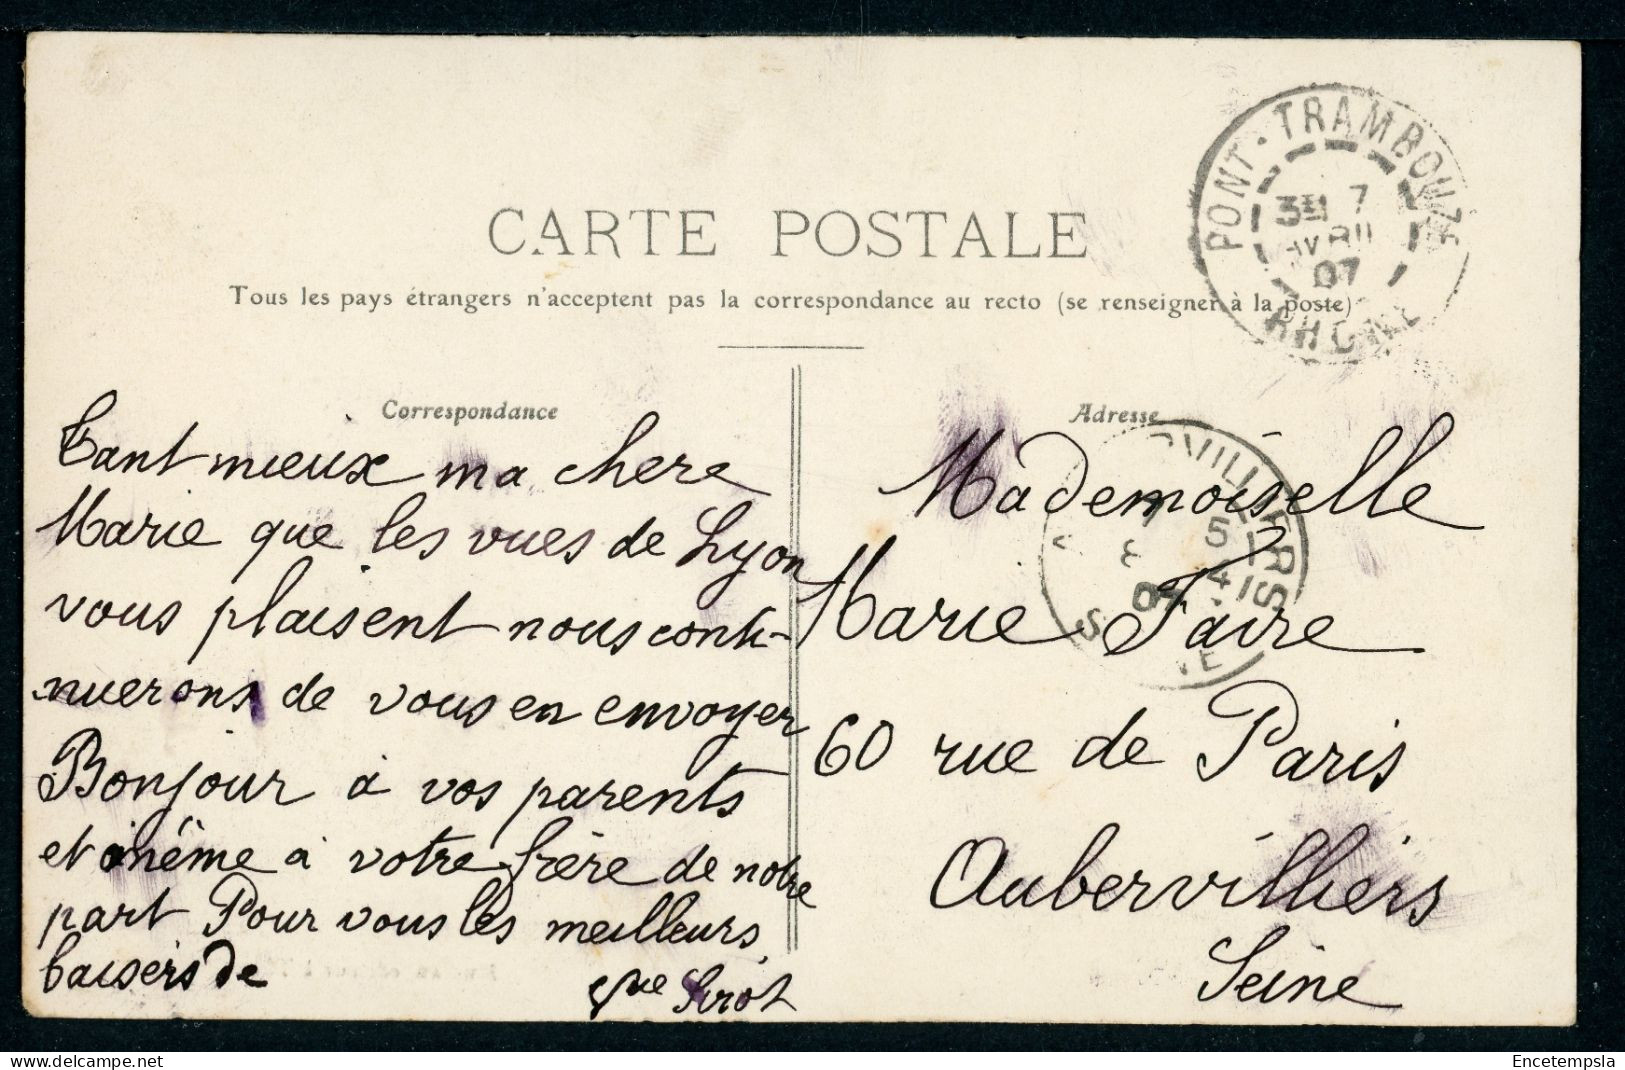 CARTE POSTALE
Tous les pays étrangers n'acceptent pas la correspondance au recto (se renseigner à la poste)
PONT-TRAMBOUZE
3E 7
AVRIL
07
RHONE
Correspondance
Tant mieux ma chere
Marie que les vues de Lyon
vous plaisent nous conti-
nuerons de vous en envoyer
Bonjour à vos parents
et même a votre frère de notre
part Pour vous les meilleurs
baisers de
Sirot
Adresse
Mademoiselle
Marie Faire
60 rue de Paris
Aubervilliers
Seine
www.delcampe.net
Encetempsla